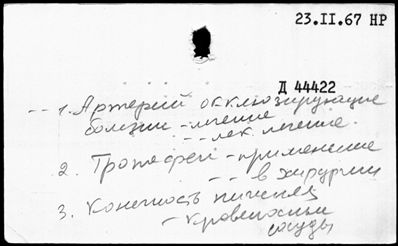 23.II.67 НР
Д 44422
-- 1. Артерий окклюзирующие
болезни - лечение
-- лек. лечение.
2. Тропафен - применение
-- в хирургии
3. Конечность нижняя
- кровеносные
сосуды